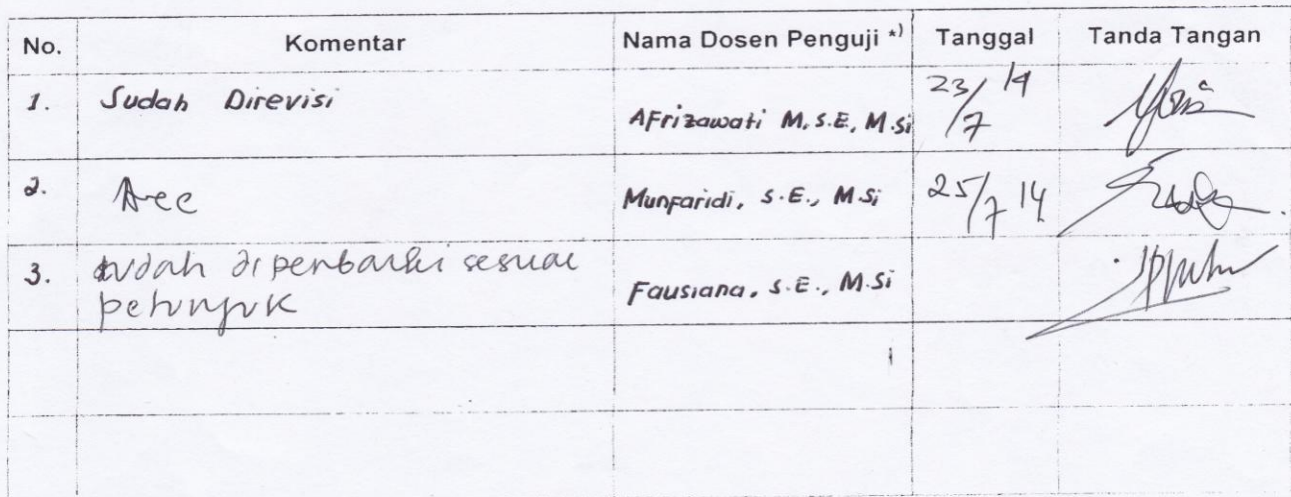 No. Komentar Nama Dosen Penguji *) Tanggal Tanda Tangan
1. Sudah Direvisi Afrizawati M, S.E, M.Si 23/7 14
2. Acc Munparidi, S.E., M.Si 25/7 14
3. sudah diperbaiki sesuai
petunjuk Fausiana, S.E., M.Si